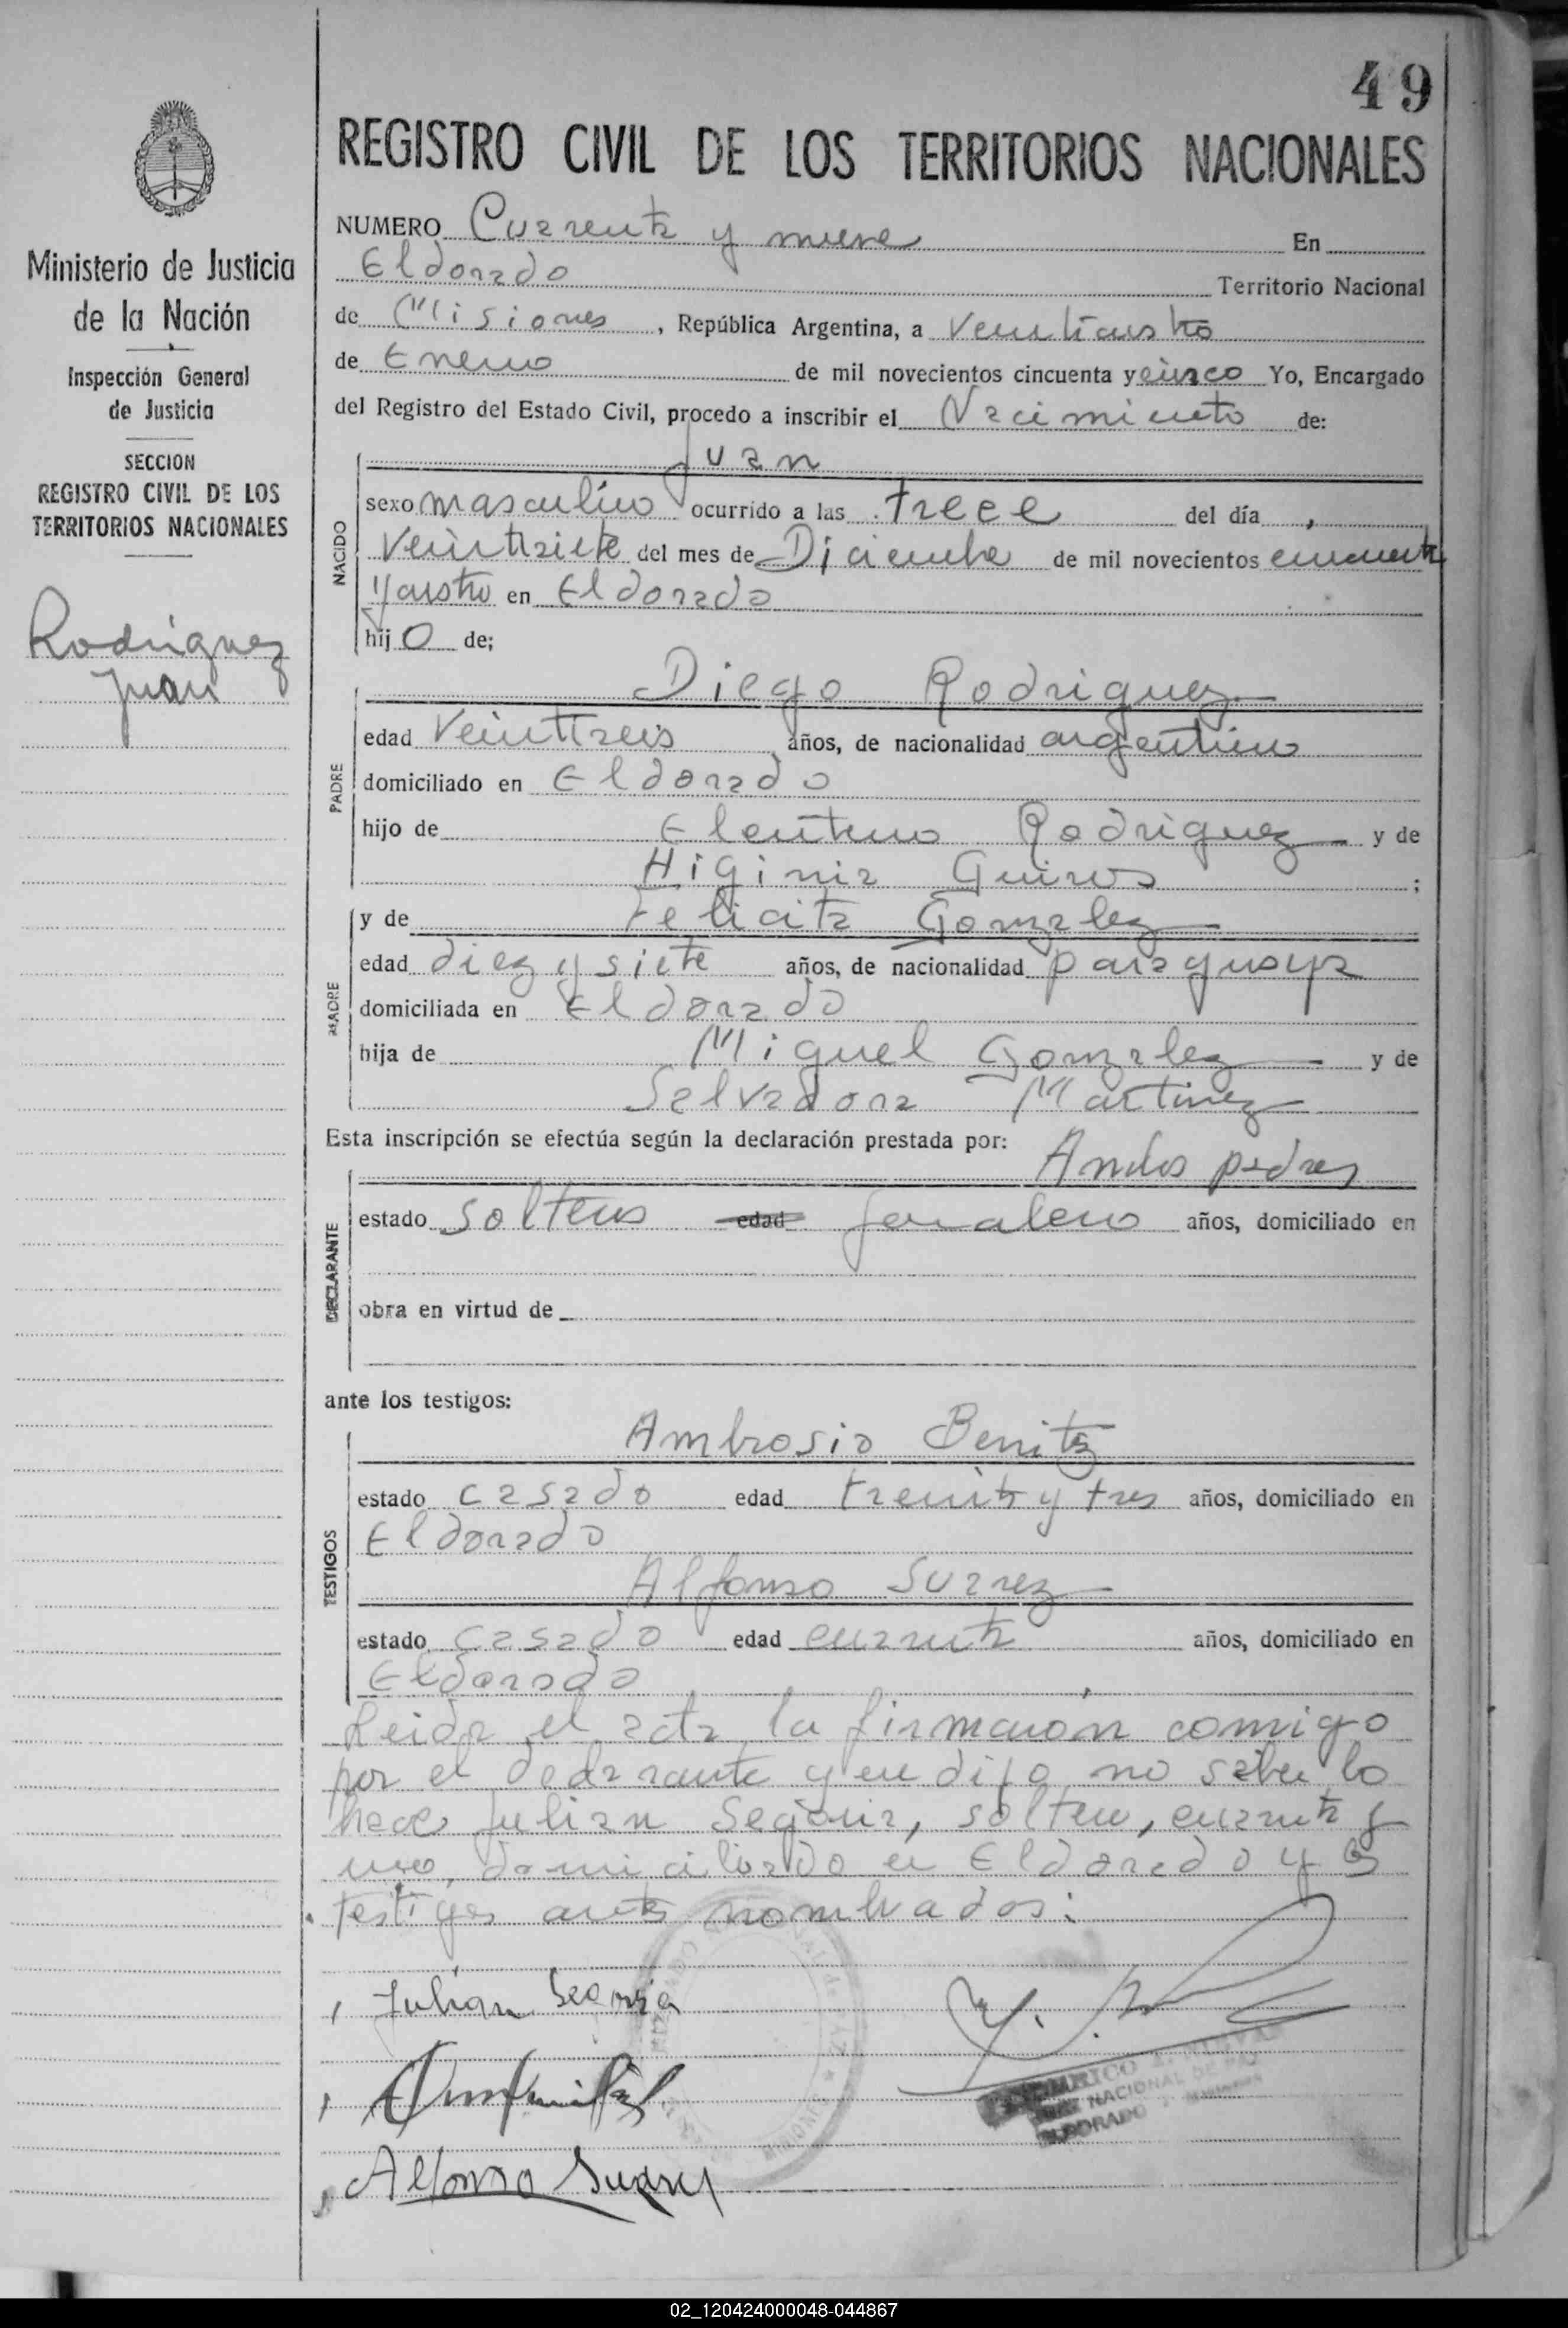 49
REGISTRO CIVIL DE LOS TERRITORIOS NACIONALES
Ministerio de Justicia
de la Nación
Inspección General
de Justicia
SECCION
REGISTRO CIVIL DE LOS
TERRITORIOS NACIONALES
Rodriguez
Juan
NUMERO Cuarenta y nueve En
Eldorado Territorio Nacional
de Misiones, República Argentina, a veinticuatro
de Enero de mil novecientos cincuenta y cinco Yo, Encargado
del Registro del Estado Civil, procedo a inscribir el Nacimiento de:
Juan
NACIDO
sexo masculino ocurrido a las trece del día
veintisiete del mes de Diciembre de mil novecientos cincuenta
y cuatro en Eldorado
hijo de;
Diego Rodriguez
PADRE
edad Veintitreis años, de nacionalidad argentino
domiciliado en Eldorado
hijo de Eleuterio Rodriguez y de
Higinia Quiros;
y de Felicita Gonzalez
MADRE
edad diez y siete años, de nacionalidad paraguaya
domiciliada en Eldorado
hija de Miguel Gonzalez y de
Salvadora Martinez
Esta inscripción se efectúa según la declaración prestada por:
Ambos padres
DECLARANTE
estado solteros edad jornalero años, domiciliado en
obra en virtud de
ante los testigos:
Ambrosio Benitez
TESTIGOS
estado casado edad treinta y tres años, domiciliado en
Eldorado
Alfonso Suarez
estado casado edad cuarenta años, domiciliado en
Eldorado
Leida el acta la firmaron comigo
por el declarante quien dijo no saber lo
hace Julian Segovia, soltero, cuarenta y
uno, domiciliado en Eldorado y los
testigos antes nombrados:
Julian Segovia
Alfonso Suarez
NACIONAL DE PAZ
ELDORADO
02_120424000048-044867